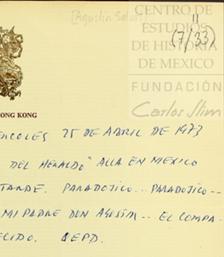 [Agustín Salvat]
11
(7/33)
CENTRO DE
ESTUDIOS
DE HISTORIA
DE MEXICO
FUNDACIÓN
Carlos Slim
ONG KONG
ERCOLES 25 DE ABRIL DE 1973
DEL HERALDO" ALLA EN MEXICO
TANDE. PARADOTICO... PARADOTICO...
MI PADRE DON AGUSIM... EL COMPA-
ECIDO. QEPD.